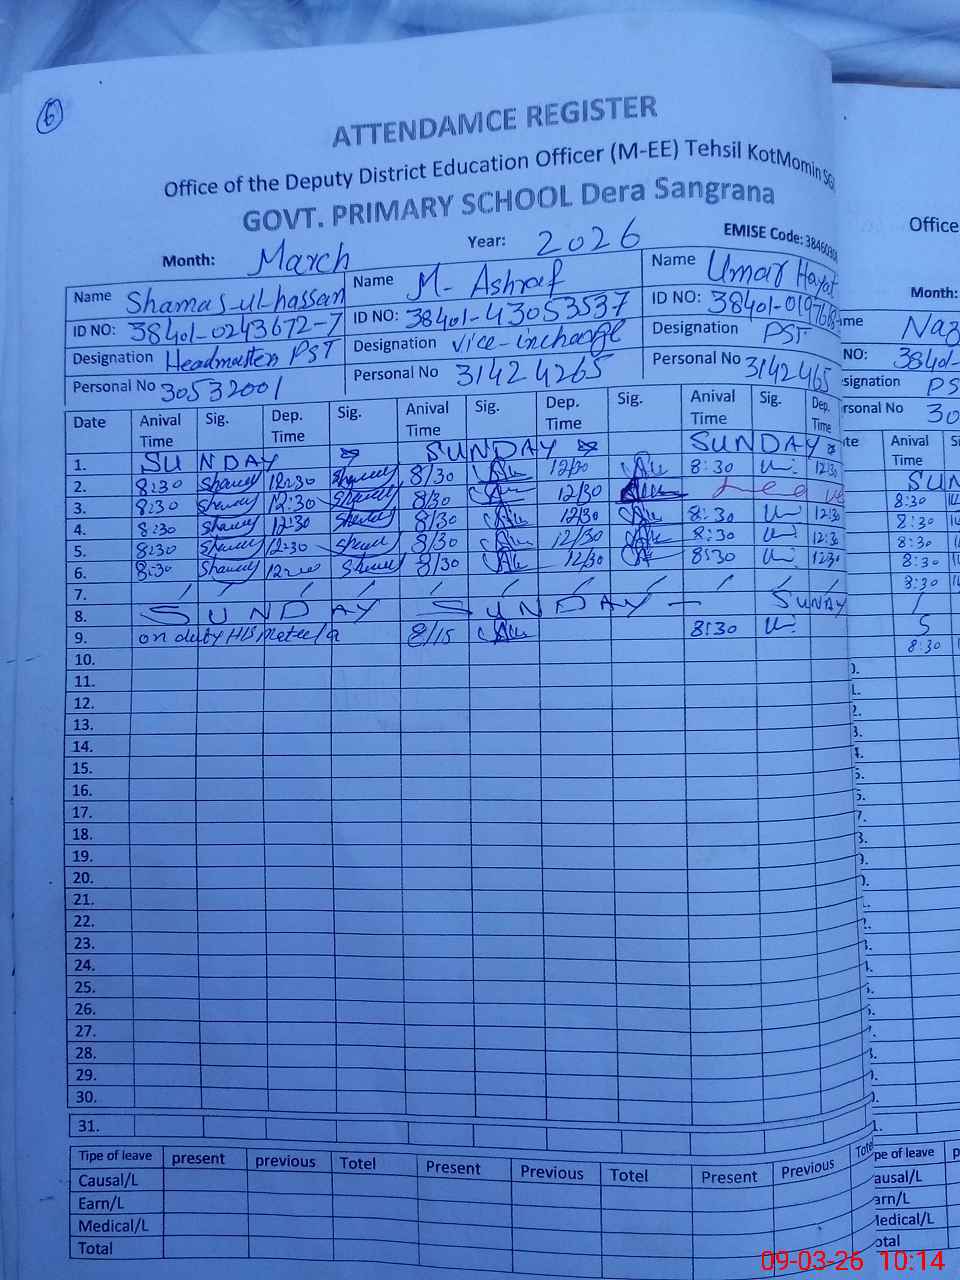 6
ATTENDAMCE REGISTER
Office of the Deputy District Education Officer (M-EE) Tehsil KotMomin
GOVT. PRIMARY SCHOOL Dera Sangrana
Month: March Year: 2026 EMISE Code:
Name Shamas-ul-hassan Name M- Ashraf Name Umar Hayat
ID NO: 38401-0243672-7 ID NO: 38401-43053537 ID NO:
Designation Headmaster PST Designation vice-incharge Designation PST
Personal No 30532001 Personal No 31424265 Personal No 3142465
Date Anival Time Sig. Dep. Time Sig. Anival Time Sig. Dep. Time Sig. Anival Time Sig. Dep. Time
1. SUNDAY SUNDAY SUNDAY
2. 8:30 12:30 8/30 12/30 8:30 12:30
3. 8:30 12:30 8/30 12/30 Leave
4. 8:30 12:30 8/30 12/30 8:30 12:30
5. 8:30 12:30 8/30 12/30 8:30 12:30
6. 8:30 8/30 12/30 8:30 1230
7. / / / / / / / / / / /
8. SUNDAY SUNDAY — SUNDAY
9. on duty 8/15 8:30
10.
11.
12.
13.
14.
15.
16.
17.
18.
19.
20.
21.
22.
23.
24.
25.
26.
27.
28.
29.
30.
31.
Tipe of leave present previous Totel Present Previous Totel Present Previous Totel
Causal/L
Earn/L
Medical/L
Total
Office
Month:
Naz
NO: 38401-
PS
30
Anival Time
SUN
8:30
8:30
8:30
8:30
8:30
09-03-26 10:14